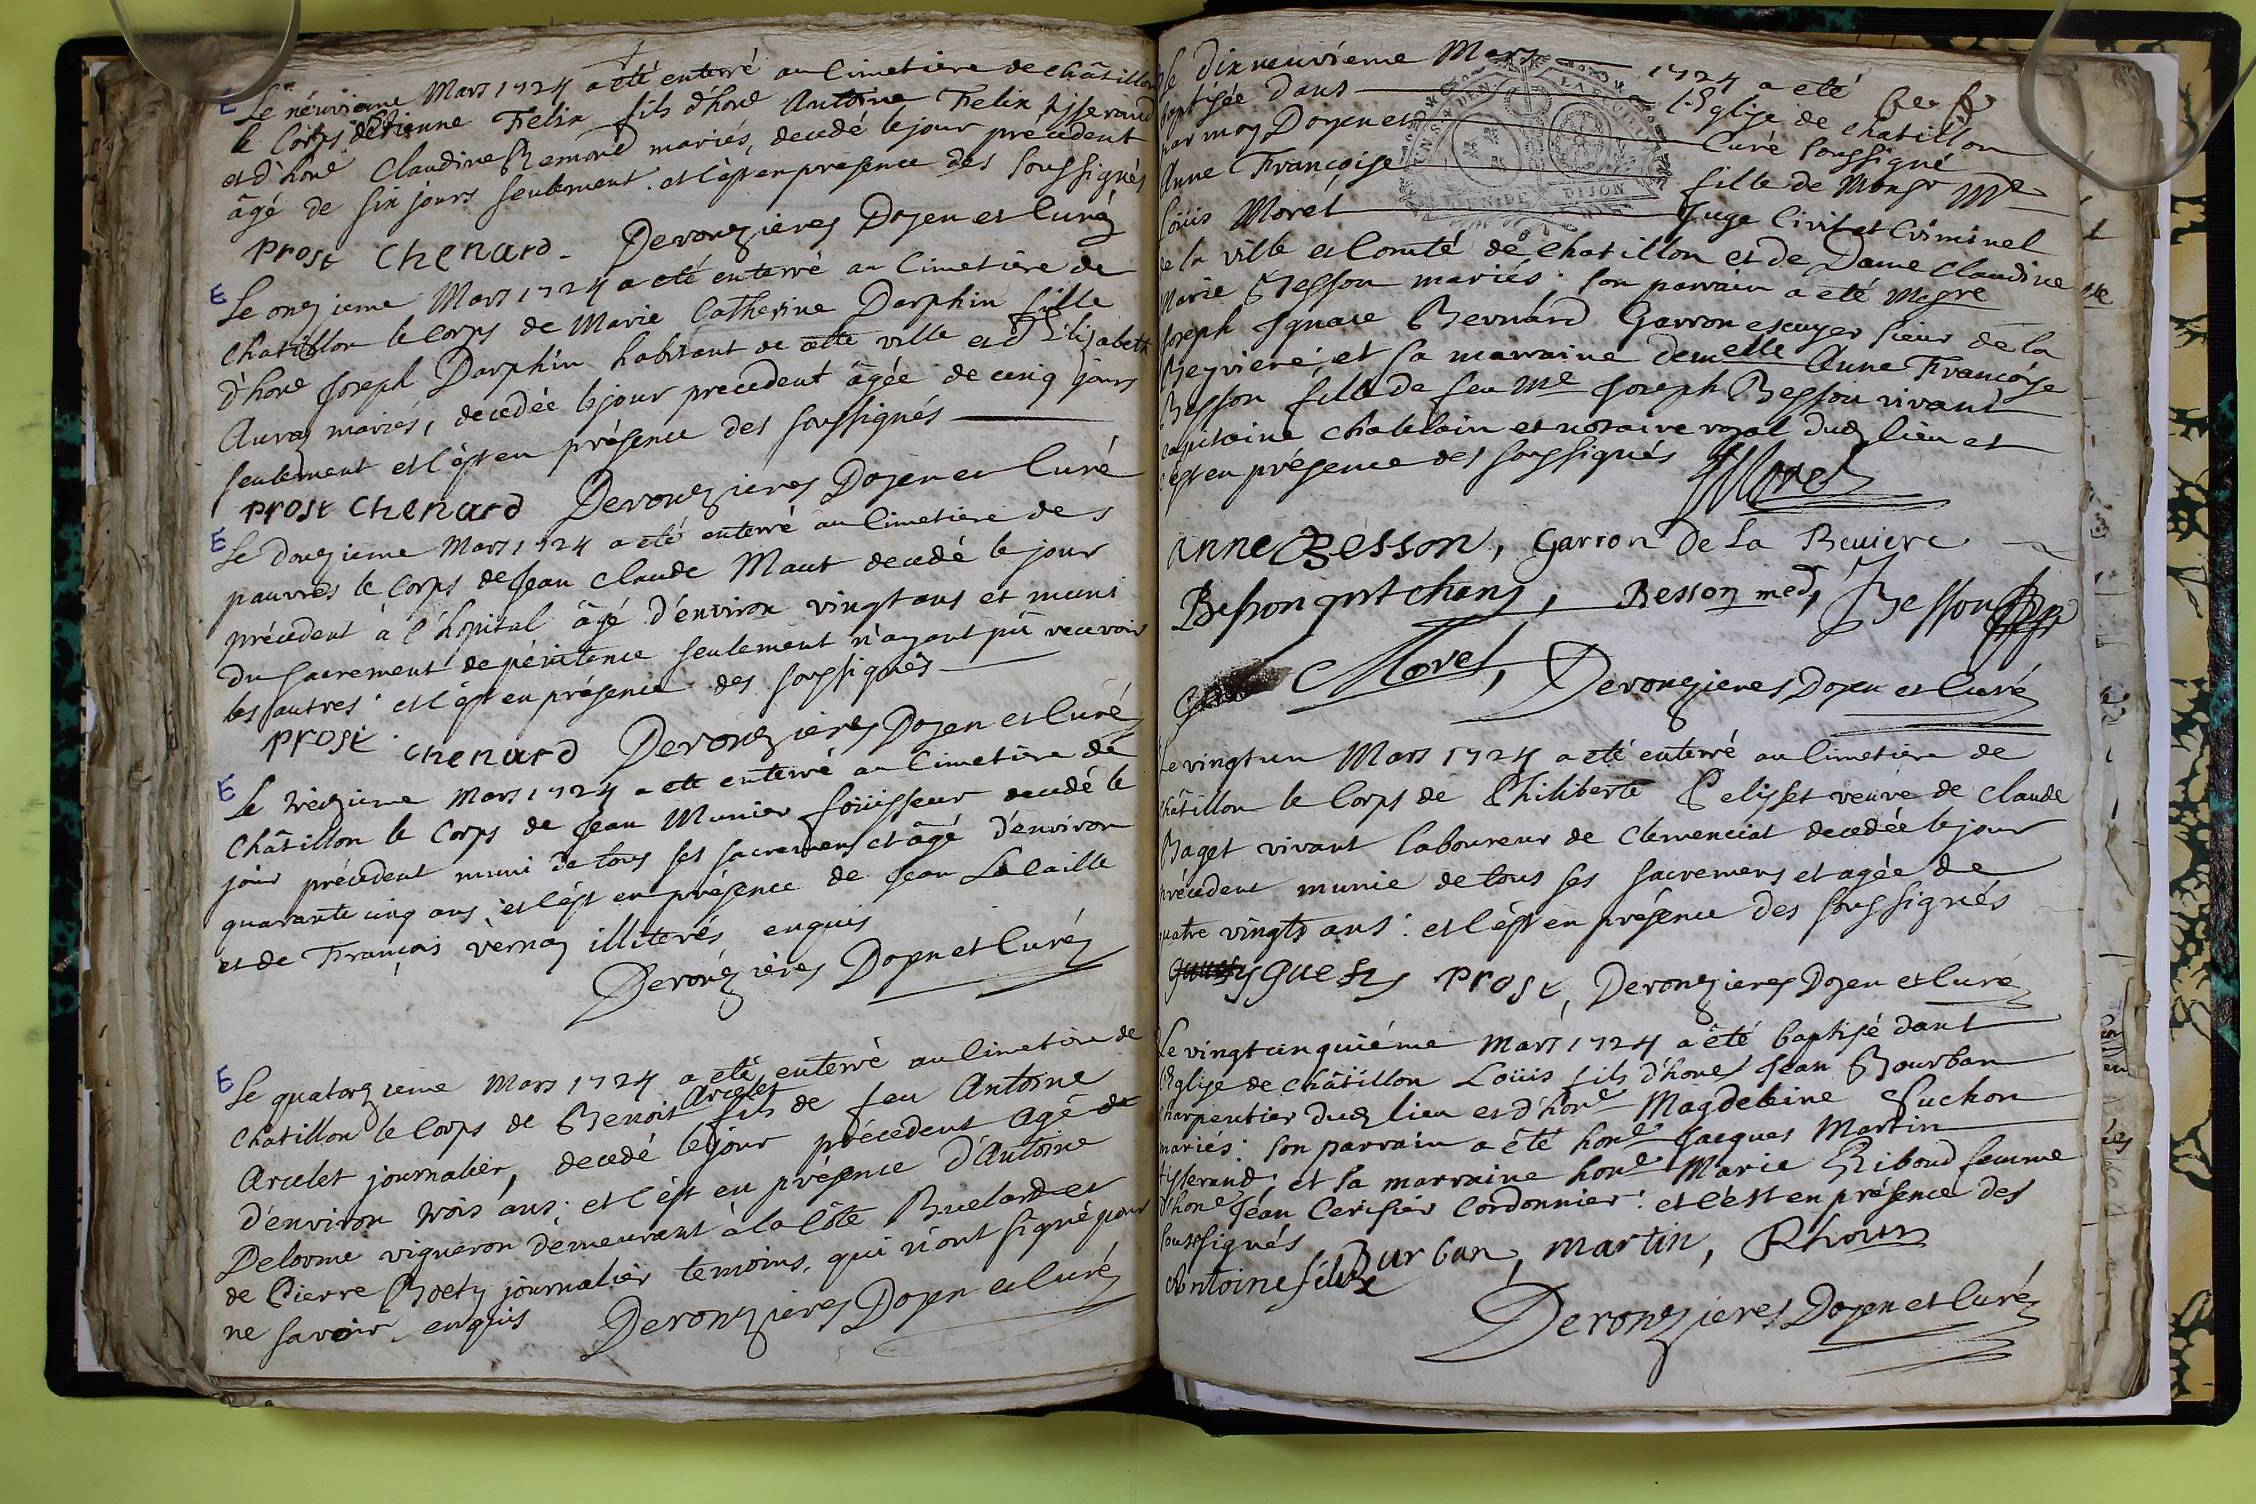 E Le neuvieme Mars 1724 a eté enterré au Cimetiere de châtillon
le Corps d'étienne Felix fils d'hone Antoine Felix tisserand
et d'hone Claudine Remond mariés, decedé le jour precedent
âgé de six jours seulement. et c'est en presence des soussignés
prost chenard. Deronzieres Doyen et Curé
E Le onzieme Mars 1724 a eté enterré au Cimetiere de
Chatillon le Corps de Marie Catherine Darphin fille
d'hone Joseph Darphin habitant de cette ville et d'Elizabeth
Auray mariés, decedée le jour precedent âgée de cinq jours
seulement et c'est en présence des soussignés
prost chenard Deronzieres Doyen et Curé
E Le douzieme Mars 1724 a eté enterré au Cimetiere des
pauvres le Corps de Jean Claude Maut decedé le jour
précedent à l'hôpital âgé d'environ vingt ans et muni
du sacrement de pénitence seulement n'ayant pû recevoir
les autres: et c'est en présence des soussignés
prost chenard Deronzieres Doyen et Curé
E Le treizieme Mars 1724 a eté enterré au Cimetiere de
Châtillon le Corps de Jean Munier foüisseur decedé le
jour précedent muni de tous ses sacremens et âgé d'environ
quarante cinq ans; et c'est en présence de Jean Lacaille
et de François vernay illiterés enquis
Deronzières Doyen et Curé
E Le quatorzieme Mars 1724 a eté enterré au Cimetiere de
Arcelet
Chatillon le Corps de Benoit fils de feu Antoine
Arcelet journalier, decedé le jour précedent âgé de
d'environ trois ans; et c'est en présence d'Antoine
Delorme vigneron demeurant à la Côte Buelard et
de Pierre Boety journalier temoins, qui n'ont signé pour
ne savoir enquis Deronzieres Doyen et Curé
Le dixneuvieme Mars 1724 a eté
baptisée dans l'Eglise de chatillon
par moy Doyen et Curé soussigné
Anne Françoise fille de Monsr Me
Loüis Morel Juge Civil et Criminel
de la ville et Comté de Chatillon et de Dame Claudine
Marie Besson mariés; son parrain a eté Messre
Joseph Ignace Bernard Garron escuyer sieur de la
Beyviere; et sa marraine demelle Anne Françoise
Besson fille de feu Me Joseph Besson vivant
capitaine chatelain et notaire royal dud lieu et
c'est en présence des soussignés Morel
anne Besson, Garron De La Beviere
Besson prt chan, Besson med, Besson
Morel, Deronzieres Doyen et Curé
Le vingt un Mars 1724 a eté enterré au Cimetiere de
châtillon le Corps de Philiberte Pelisset veuve de Claude
Baget vivant laboureur de Clemenciat decedée le jour
précedent munie de tous ses sacremens et agée de
quatre vingts ans: et c'est en présence des soussignés
prost, Deronzieres Doyen et Curé
Le vingt cinquiéme Mars 1724 a été baptisé dans
l'Eglise de châtillon Loüis fils d'hone Jean Bourban
charpentier dud lieu et d'hone Magdeleine Puchon
mariés: son parrain a été hone Jacques Martin
tisserand: et sa marraine hone Marie Riboud femme
d'hone Jean Cerisier Cordonnier: et c'est en présence des
soussignés Burban, martin,
Antoine
Deronzieres Doyen et Curé